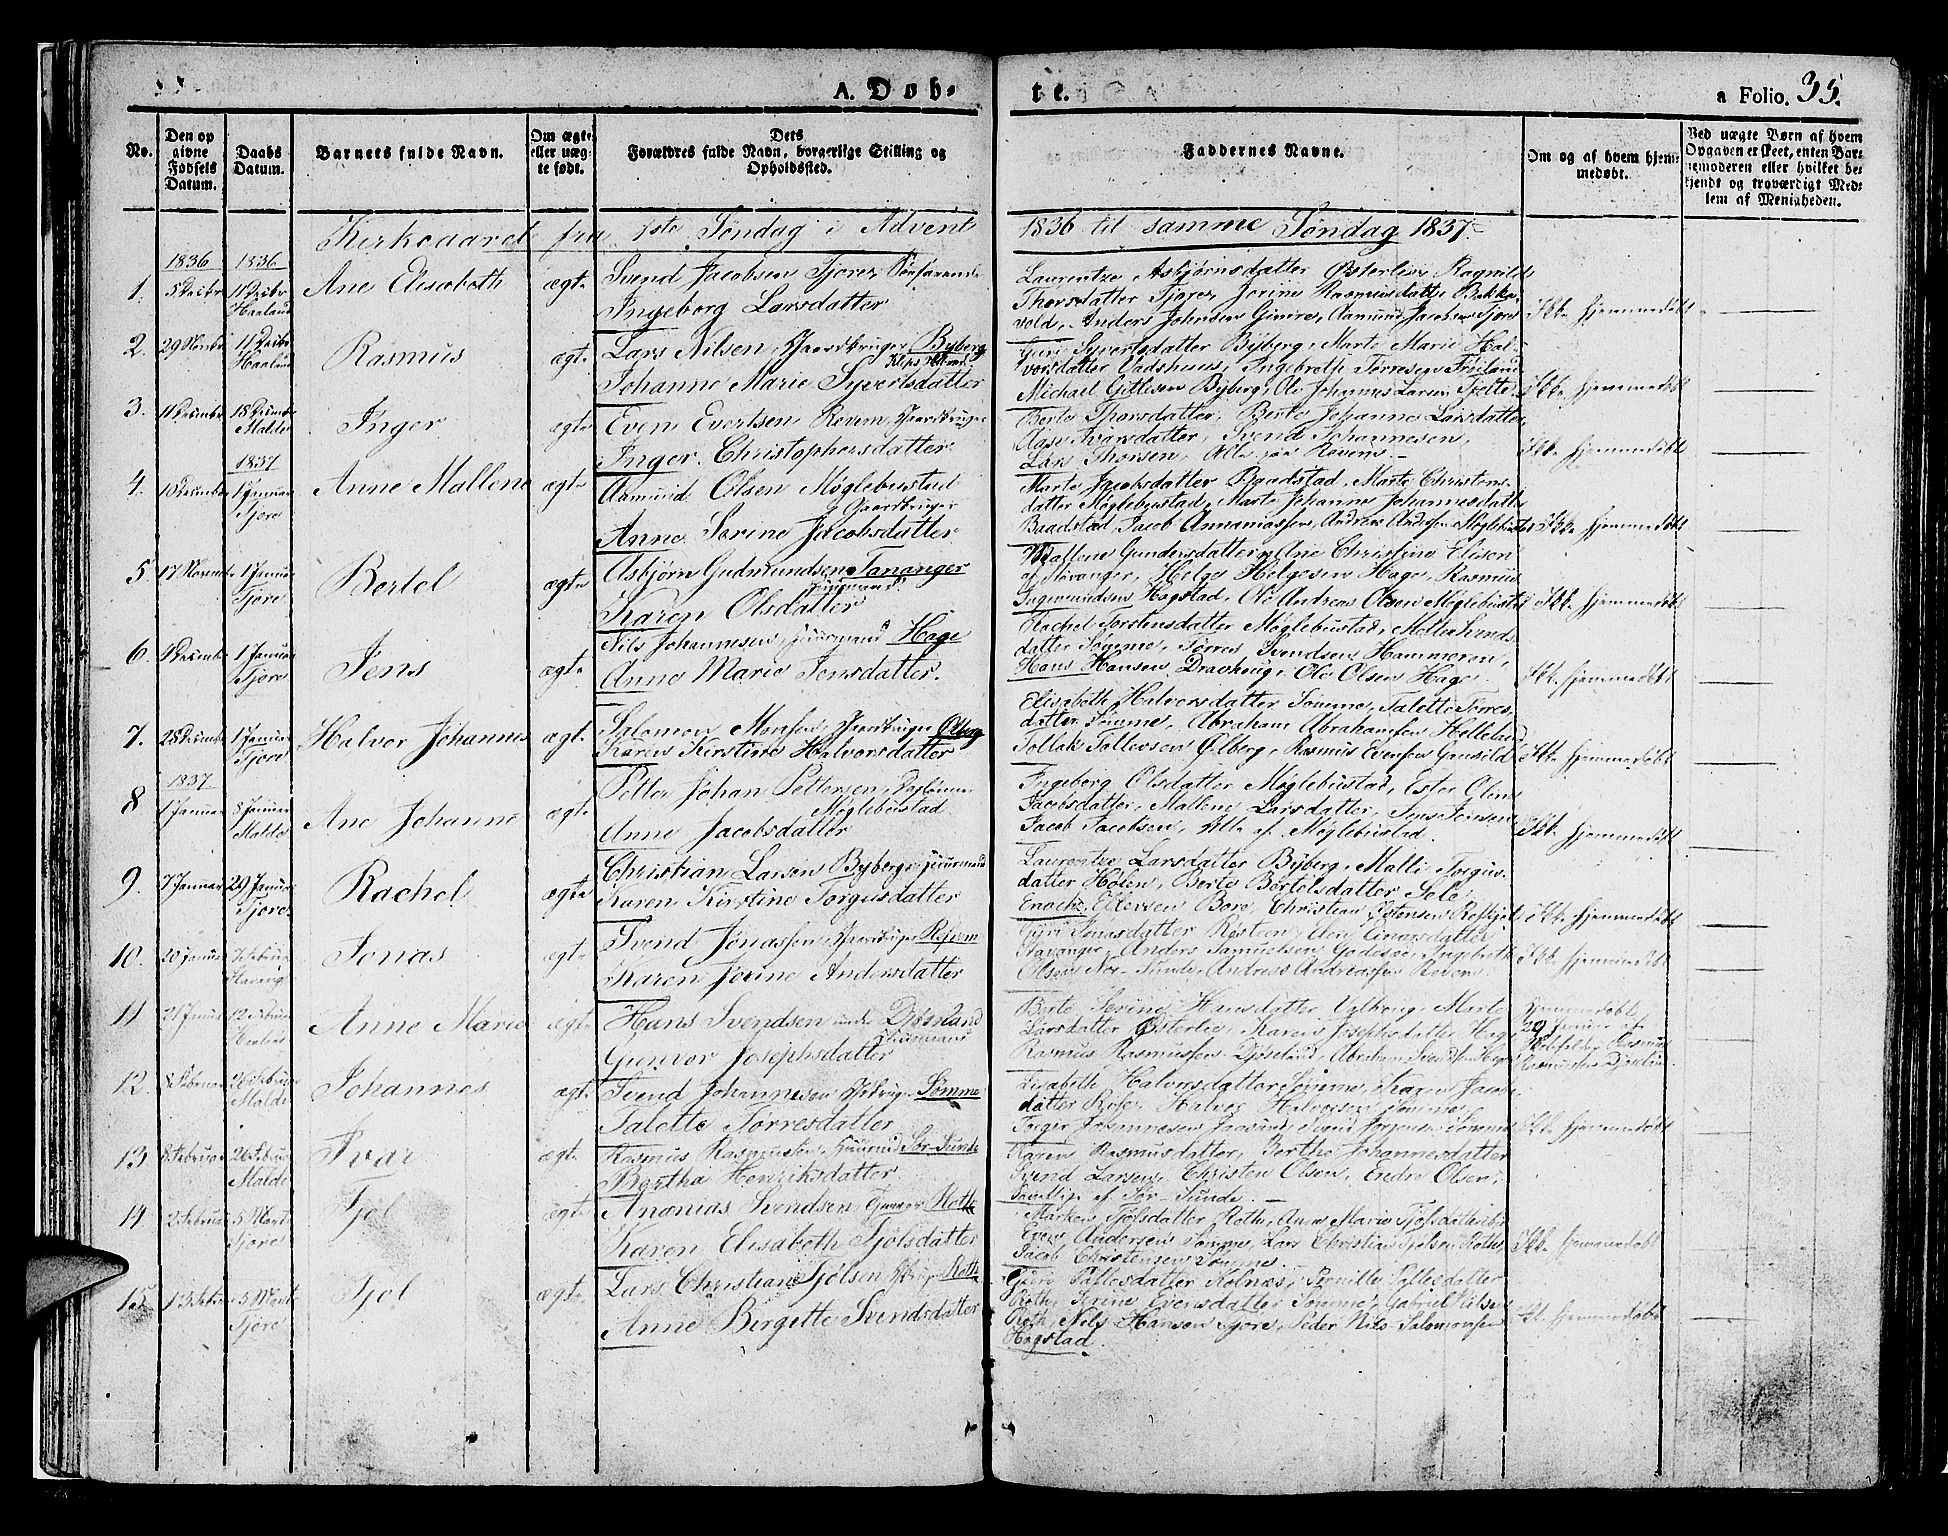 A. Døb-
te.
a Folio. 35.
No.
Den op
givne
Fødsels
Datum.
Daabs
Datum.
Barnets fulde Navn.
Om ægte
eller uæg-
te født.
Dets
Forældres fulde Navn, borgerlige Stilling og
Opholdssted.
Faddernes Navne.
Om og af hvem hjem-
medøbt.
Ved uægte Børn af hvem
Opgaven er skeet, enten Bar-
nemoderen eller hvilket be-
kjendt og troværdigt Med-
lem af Menigheden.
Kirkeaaret fra 1ste Søndag i Advent
1836 til samme Søndag 1837.
1836 1836
1. 5 Decbr 11 Decbr Haaland
Ane Elisabeth
ægte
Svend Jacobsen Tjore, Søefarende
Ingeborg Larsdatter
Laurentze Asbjørnsdatter Østerlie, Ragnild
Thorsdatter Tjore, Jorine Rasmusdatter Bakke-
vold, Anders Johnsen Gimre, Aamund Jacobsen Tjore
Ikke hjemmedøbt
2. 29 Novbr 11 Decbr Haaland
Rasmus
ægte
Lars Nilsen, Gaardbruger Byberg
Johanne Marie Syvertsdatter
Guri Syvertsdatter Byberg, Marte Marie Hal-
vorsdatter Vadshuus, Ingebretje Tørresen
Michael Gitlesen Byberg, Ole Johannes Larsen
Ikke hjemmedøbt
3. 11 Decembr 18 Decembr Malde
Inger
ægte
Even Evertsen Revem, Gaardbruger
Inger Christophersdatter
Berte Thorsdatter, Berte Johanne Larsdatter,
Aase Ivarsdatter, Svend Johannesen,
Lars Thorsen, Alle paa Revem.
Ikke hjemmedøbt
1837
4. 10 December 1 Januar Tjore
Anne Mallene
ægte
Aamund Olsen Møglebustad
Gaardbruger
Anne Serine Jacobsdatter
Marte Jacobsdatter Baadstad, Marte Christens-
datter Møglebustad, Marte Johanne Johannesdatter
Baadstad, Jacob Annaniassen, Andreas Andersen Møglebustad
Ikke hjemmedøbt
5 17 Novemb. 1 Januar Tjore
Bertel
ægte
Asbjørn Gudmundsen Tananger
Huusmand
Karen Olsdatter
Mallene Gundersdatter, Ane Christine Elisen
af Stavanger, Helge Helgesen Hage, Rasmus
Ingemundsen Hogstad, Ole Andreas Olsen Møglebustad
Ikke hjemmedøbt
6. Decembr 1 Januar Tjore
Jens
ægte
Nils Johannesen, Huusmand Hage
Anne Marie Jensdatter.
Rachel Torstensdatter Møglebustad, Malle Svends-
datter Sømme, Tørres Svendsen Hammeren,
Hans Hansen, Ole Olsen Hage.
Ikke hjemmedøbt
7. 28 Decembr 1 Januar Tjore
Halvor Johannes
ægte
Salomon Monsen, Gaardbruger Ølberg
Karen Kirstine Halvorsdatter
Elisabeth Halvorsdatter Sømme, Talette Tørres-
datter Sømme, Abraham Abrahamsen Helleland
Tollak Tollevsen Ølberg, Rasmus Evensen
Ikke hjemmedøbt
1837
8 1 Januar 8 Januar Malde
Ane Johanne
ægte
Petter Johan Pettersen,
Møglebustad
Anne Jacobsdatter
Ingeborg Olsdatter Møglebustad, Ester Olene
Jacobsdatter, Mallene Larsdatter, Jens Jensen
Jacob Jacobsen, Alle af Møglebustad.
Ikke hjemmedøbt
9. 7 Januar 29 Januar Tjore
Rachel
ægte
Christian Larsen Byberg, Huusmand
Karen Kirstine Torgusdatter
Laurentze Larsdatter Byberg, Malli Torgus-
datter Hølen, Berte Bertelsdatter Sele
Enoch Edersen Bore, Christian
Ikke hjemmedøbt
10. 30 Januar Februar
Jonas
ægte
Svend Jonassen, Gaardbruger
Karen Jorine Andersdatter
Guri Jonasdatter
Stavanger, Anders Samuelsen Godesø, Ingebreth
Olsen Nor-Sunde, Andreas Andreassen Revem
Ikke hjemmedøbt
11 21 Januar 12 Februar Haaland
Anne Marie
ægte
Hans Svendsen under Djøsland
Huusmand
Gunvor Josephsdatter
Berte Serine Hansdatter, Marte
Larsdatter Østerlie, Karen Josephsdatter
Rasmus Rasmussen Djøseland, Abraham
hjemmedøbt
29 Januar af
Rasmus
Rasmussen
12 8 Februar 26 Februar Malde
Johannes
ægte
Svend Johannesen, Sømme
Talette Tørresdatter
Lisabeth Halvorsdatter Sømme, Karen Jacobs-
datter, Halvor Halvorsen Sømme
Torger Johannesen, Svend Jørgensen Sømme
Ikke hjemmedøbt
13 8 Februar 26 Februar Malde
Ivar
ægte
Rasmus Rasmussen, Huusmand Sør-Sunde
Bertha Henriksdatter
Karen Rasmusdatter, Berthe Johannesdatter
Svend Larsen, Christen Olsen, Endre Olsen,
Samtlige af Sør-Sunde.
14 2 Februar 5 Marts Tjore
Tjøl
ægte
Ananias Svendsen Roth
Karen Elisabeth Tjølsdatter
Marken Tjølsdatter Roth, Anne Marie Tjølsdatter
Even Andersen Sømme, Lars Christian Tjølsen Roth,
Jacob Christensen Sømme.
Ikke hjemmedøbt
15 13 Febr 5 Marts Tjore
Tjøl
ægte
Lars Christian Tjølsen, Roth
Anne Birgitte Svendsdatter
Guri Pallesdatter Kolnæs, Pallesdatter
Roth, Serine Evensdatter Sømme, Gabriel Nilsen
Roth, Nils Hansen Tjore, Peder Nils Salomonsen
Hogstad.
Ikke hjemmedøbt